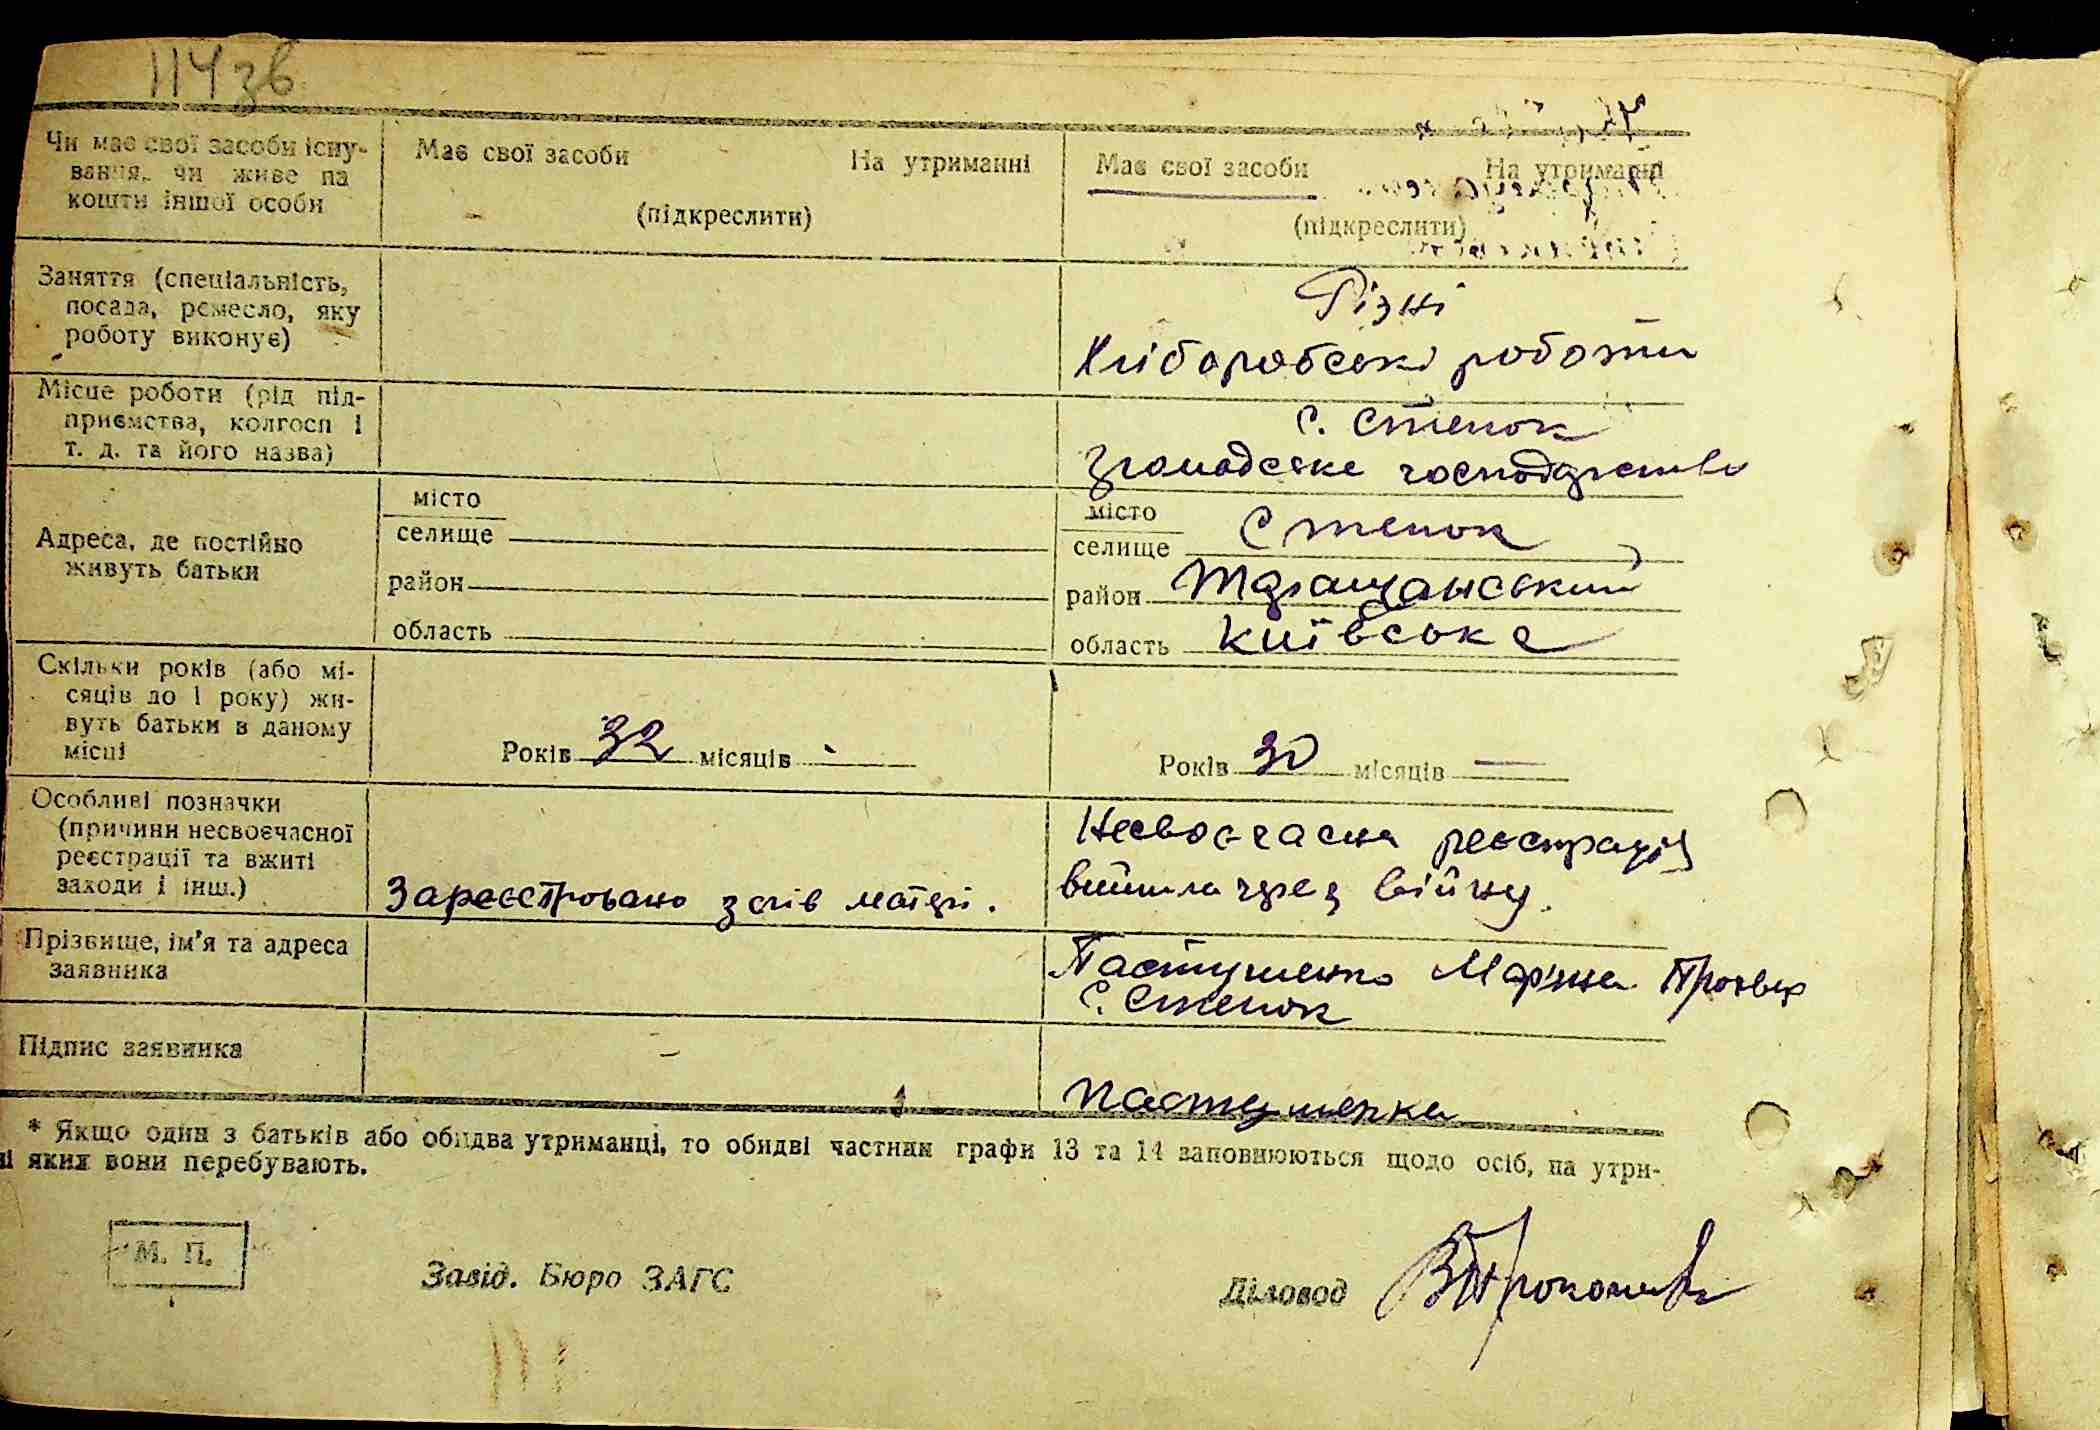 114 зв
Чи має свої засоби існу-
вання, чи живе на
кошти іншої особи
Має свої засоби На утриманні
(підкреслити)
Має свої засоби На утриманні
(підкреслити)
Заняття (спеціальність,
посада, ремесло, яку
роботу виконує)
Різні
Хліборобські роботи
Місце роботи (рід під-
приємства, колгосп і
т. д. та його назва)
с. Стенок
громадське господарство
Адреса, де постійно
живуть батьки
місто
селище
район
область
місто
селище Стенок
район Таращанський
область Київська
Скільки років (або мі-
сяців до 1 року) жи-
вуть батьки в даному
місці
Років 32 місяців -
Років 30 місяців —
Особливі позначки
(причини несвоєчасної
реєстрації та вжиті
заходи і інш.)
Зареєстровано з слів матері.
Несвоєчасна реєстрація
вийшла через війну.
Прізвище, ім'я та адреса
заявника
Пастушенко Мар'яна
с. Стенок
Підпис заявника
—
Пастушенко
* Якщо один з батьків або обидва утриманці, то обидві частини графи 13 та 14 заповнюються щодо осіб, на утри-
ні яких вони перебувають.
М. П.
Завід. Бюро ЗАГС
Діловод